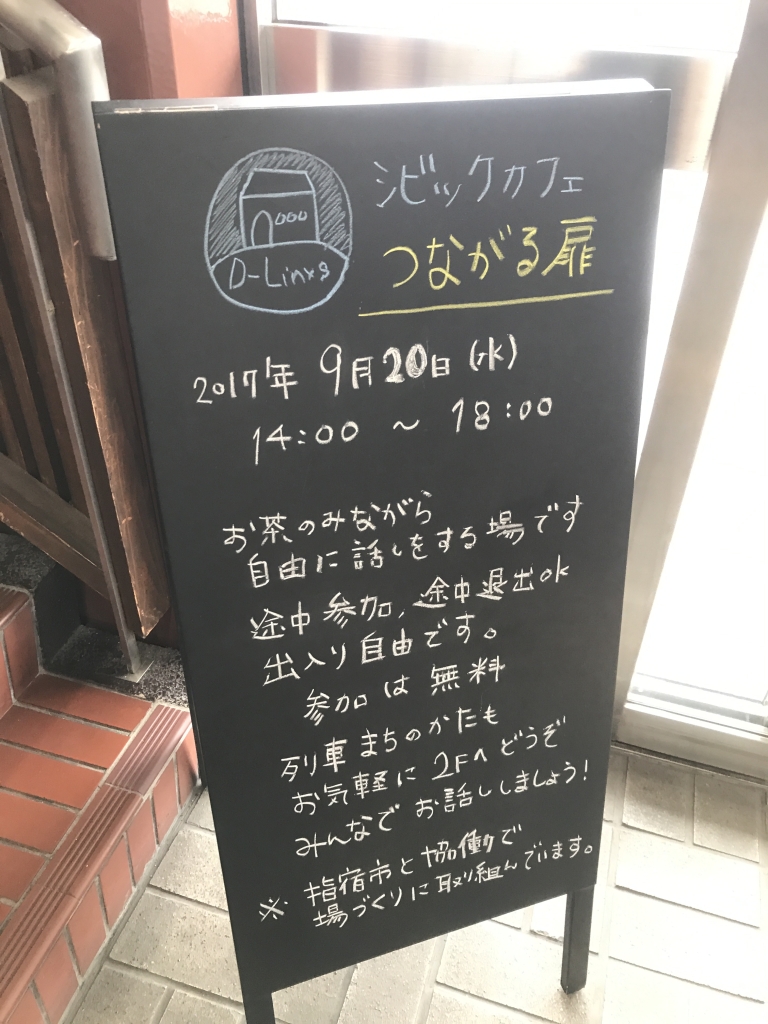 シビックカフェ
つながる扉
D-Linxs
2017年 9月20日(水)
14:00 ~ 18:00
お茶のみながら
自由に話しをする場です
途中参加、途中退出ok
出入り自由です。
参加は無料
列車まちのかたも
お気軽に2Fへどうぞ
みんなでお話ししましょう!
※ 指宿市と協働で
場づくりに取り組んでいます。